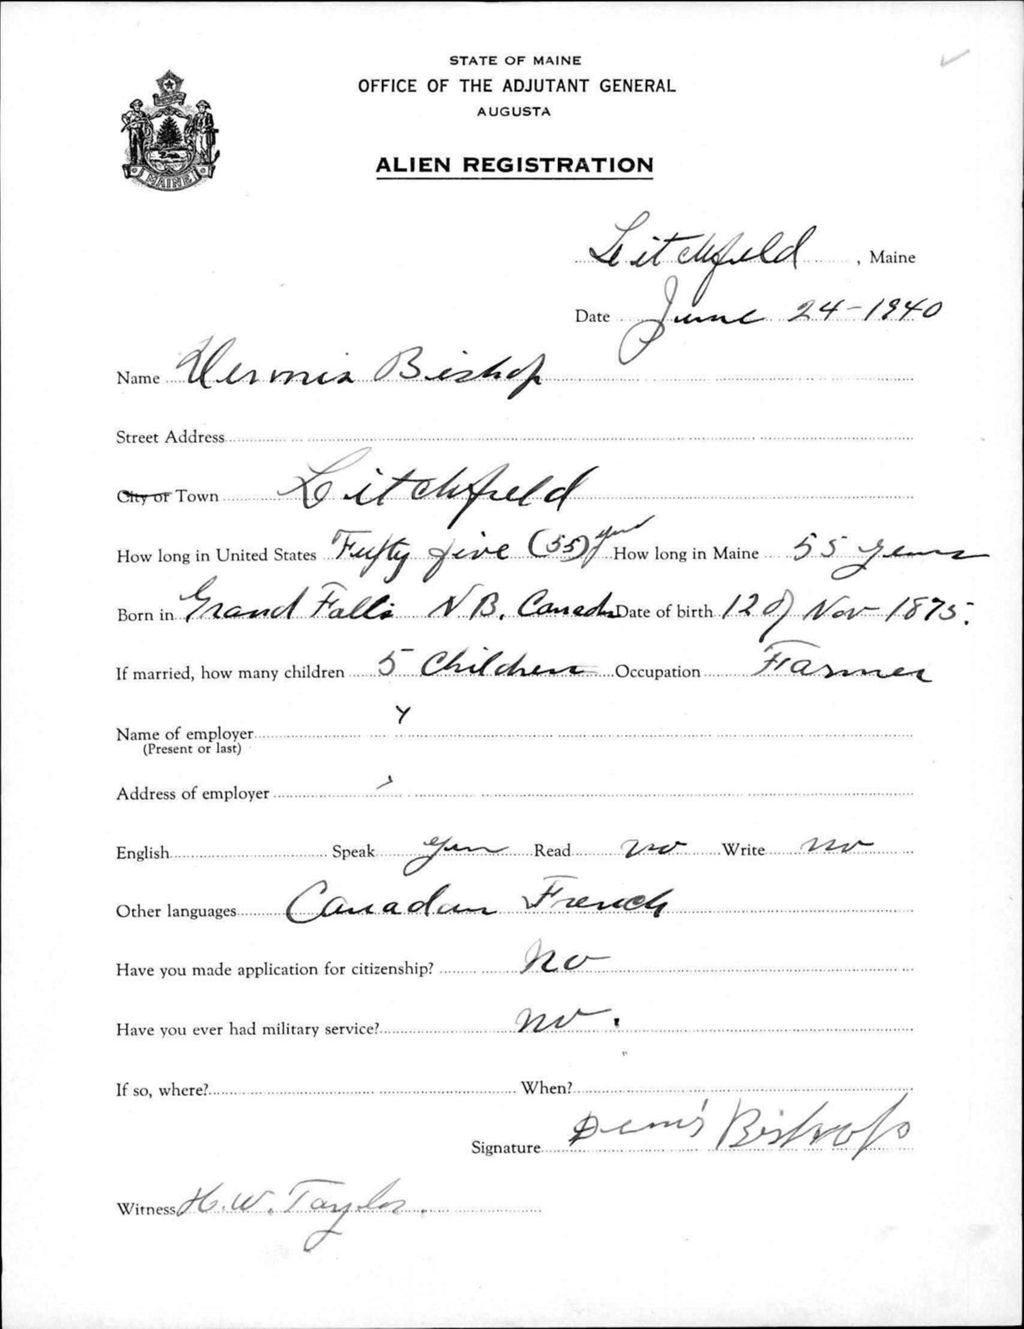 STATE OF MAINE
OFFICE OF THE ADJUTANT GENERAL
AUGUSTA
MAINE
ALIEN REGISTRATION
Litchfield, Maine
Date June 24-1940
Name Bishop
Street Address
City or Town Litchfield
How long in United States Fifty five (55) years How long in Maine 55 years
Born in Grand Falls N B, Canada Date of birth 12 of Nov 1875.
If married, how many children 5 Children Occupation Farmer
Name of employer
(Present or last)
Address of employer
English Speak yes Read no Write no
Other languages Canadian French
Have you made application for citizenship? no
Have you ever had military service? no.
If so, where? When?
Signature Denis Bishop
Witness H. W. Taylor.